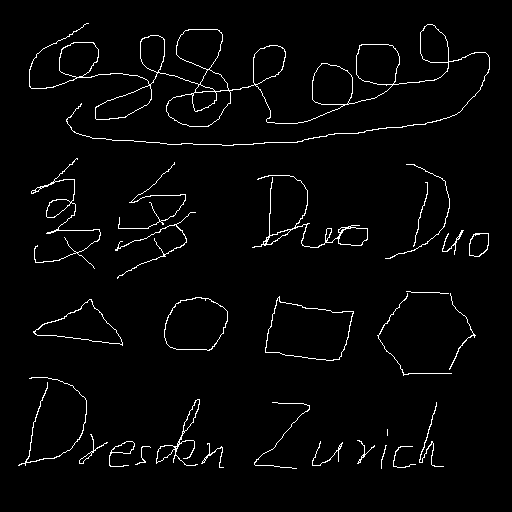 多多 Duo Duo
Dresden Zurich